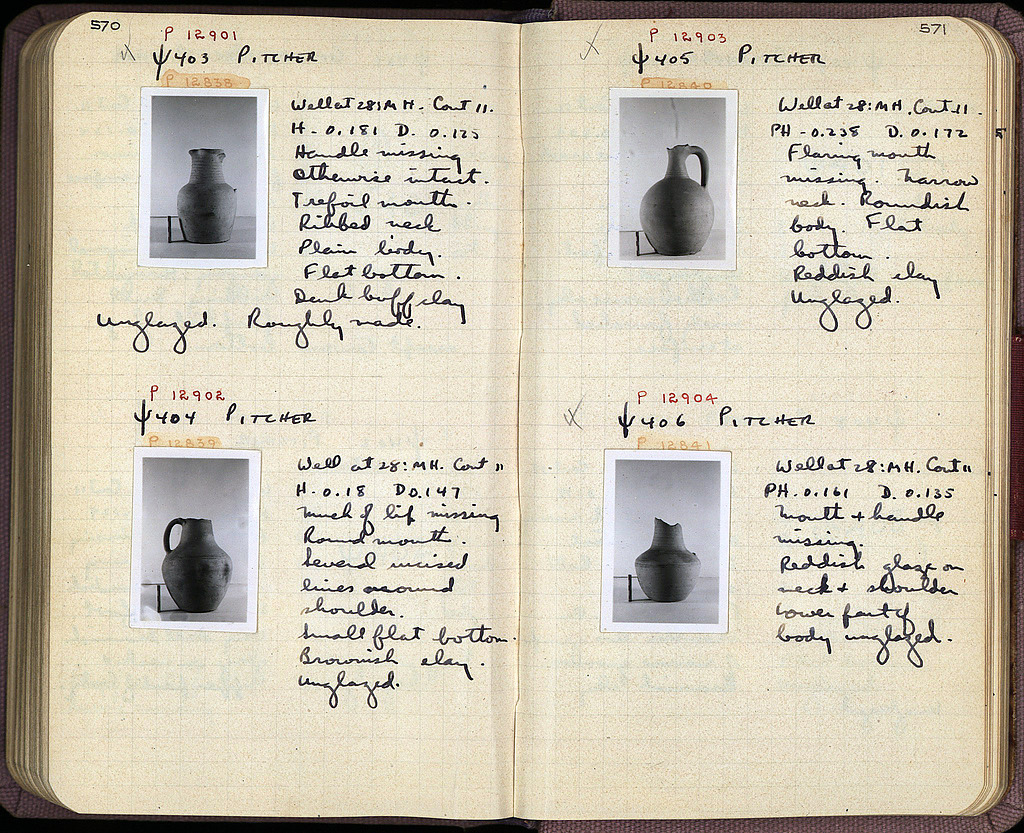 570
P 12901
ψ403 PITCHER
P 12838
Well at 28:MH. Cont 11.
H - 0.181 D. 0.125
Handle missing
otherwise intact.
Trefoil mouth.
Ribbed neck
Plain body.
Flat bottom.
Dark buff clay
Unglazed. Roughly made.
P 12902
ψ404 PITCHER
P 12839
Well at 28:MH. Cont 11
H. 0.18 D 0.147
Much of lip missing
Round mouth.
Several incised
lines around
shoulder.
Small flat bottom.
Brownish clay.
Unglazed.
571
P 12903
ψ405 PITCHER
P 12840
Well at 28:MH. Cont. 11.
PH - 0.238 D. 0.172
Flaring mouth
missing. Narrow
neck. Roundish
body. Flat
bottom.
Reddish clay
Unglazed.
P 12904
ψ406 PITCHER
P 12841
Well at 28:MH. Cont 11
PH. 0.161 D. 0.135
Mouth + handle
missing.
Reddish glaze on
neck + shoulder
Lower part of
body unglazed.